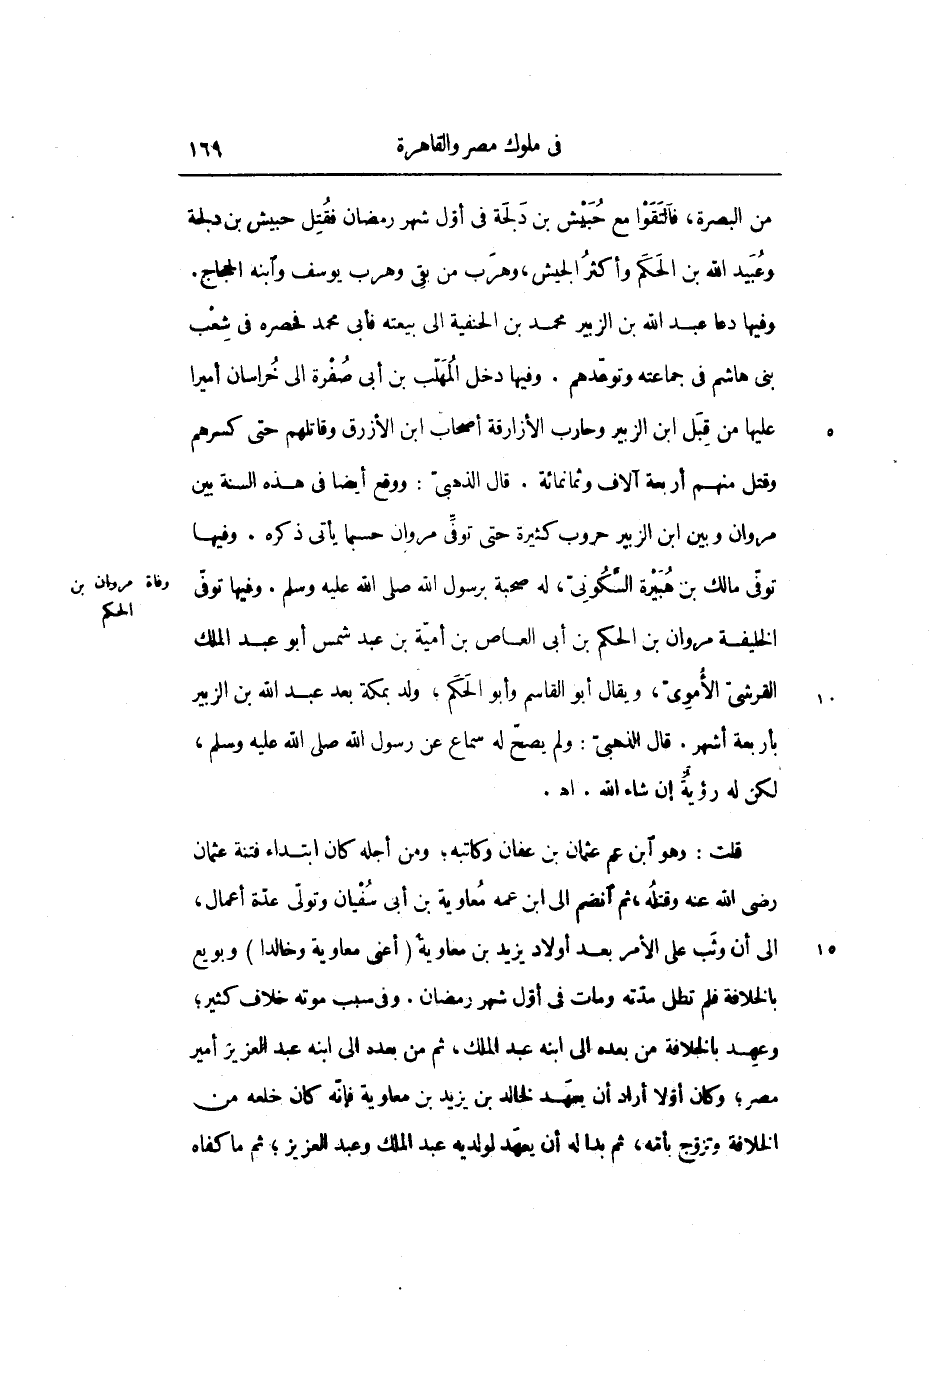 فى ملوك مصر والقاهرة ١٦٩
من البصرة، فآلتَقَوْا مع حُبَيْش بن دَلَجَة فى أوّل شهر رمضان فقُتِل حبيش بن دلجة
وعُبَيد الله بن الحَكَم وأكثرُ الجيش، وهرَب من بقِى وهرب يوسف وآبنه الحجاج.
وفيها دعا عبد الله بن الزبير محمد بن الحنفية الى بيعته فأبى محمد فحصره فى شِعْب
بنى هاشم فى جماعته وتوعّدهم. وفيها دخل المُهَلّب بن أبى صُفْرة الى خُراسان أميرا
عليها من قِبَل ابن الزبير وحارب الأزارقة أصحاب ابن الأزرق وقاتلهم حتى كسرهم ٥
وقتل منهم أربعة آلاف وثمانمائة. قال الذهبىّ: ووقع أيضا فى هذه السنة بين
مروان وبين ابن الزبير حروب كثيرة حتى توفِّى مروان حسبما يأتى ذكره. وفيها
توفّى مالك بن هُبَيْرة السَّكُونىّ، له صحبة برسول الله صلى الله عليه وسلم. وفيها توفّى
وفاة مروان بن
الحكم
الخليفة مروان بن الحكم بن أبى العاص بن أميّة بن عبد شمس أبو عبد الملك
القرشىّ الأُموِىّ، ويقال أبو القاسم وأبو الحَكَم؛ ولد بمكة بعد عبد الله بن الزبير ١٠
بأربعة أشهر. قال الذهبىّ: ولم يصحّ له سماع عن رسول الله صلى الله عليه وسلم،
لكن له رؤيةٌ إن شاء الله. اه.
قلت: وهو آبن عم عثمان بن عفان وكاتبه؛ ومن أجله كان ابتداء فتنة عثمان
رضى الله عنه وقتلُه، ثم آنضم الى ابن عمه مُعاوية بن أبى سُفْيان وتولّى عدّة أعمال،
الى أن وثَب على الأمر بعد أولاد يزيد بن معاوية (أعنى معاوية وخالدا) وبويع ١٥
بالخلافة فلم تطل مدّته ومات فى أوّل شهر رمضان. وفى سبب موته خلاف كثير؛
وعهِد بالخلافة من بعده الى ابنه عبد الملك، ثم من بعده الى ابنه عبد العزيز أمير
مصر؛ وكان أوّلا أراد أن يعهَد لخالد بن يزيد بن معاوية فإنّه كان خلعه من
الخلافة وتزوّج بأمّه، ثم بدا له أن يعهَد لولديه عبد الملك وعبد العزيز؛ ثم ما كفاه